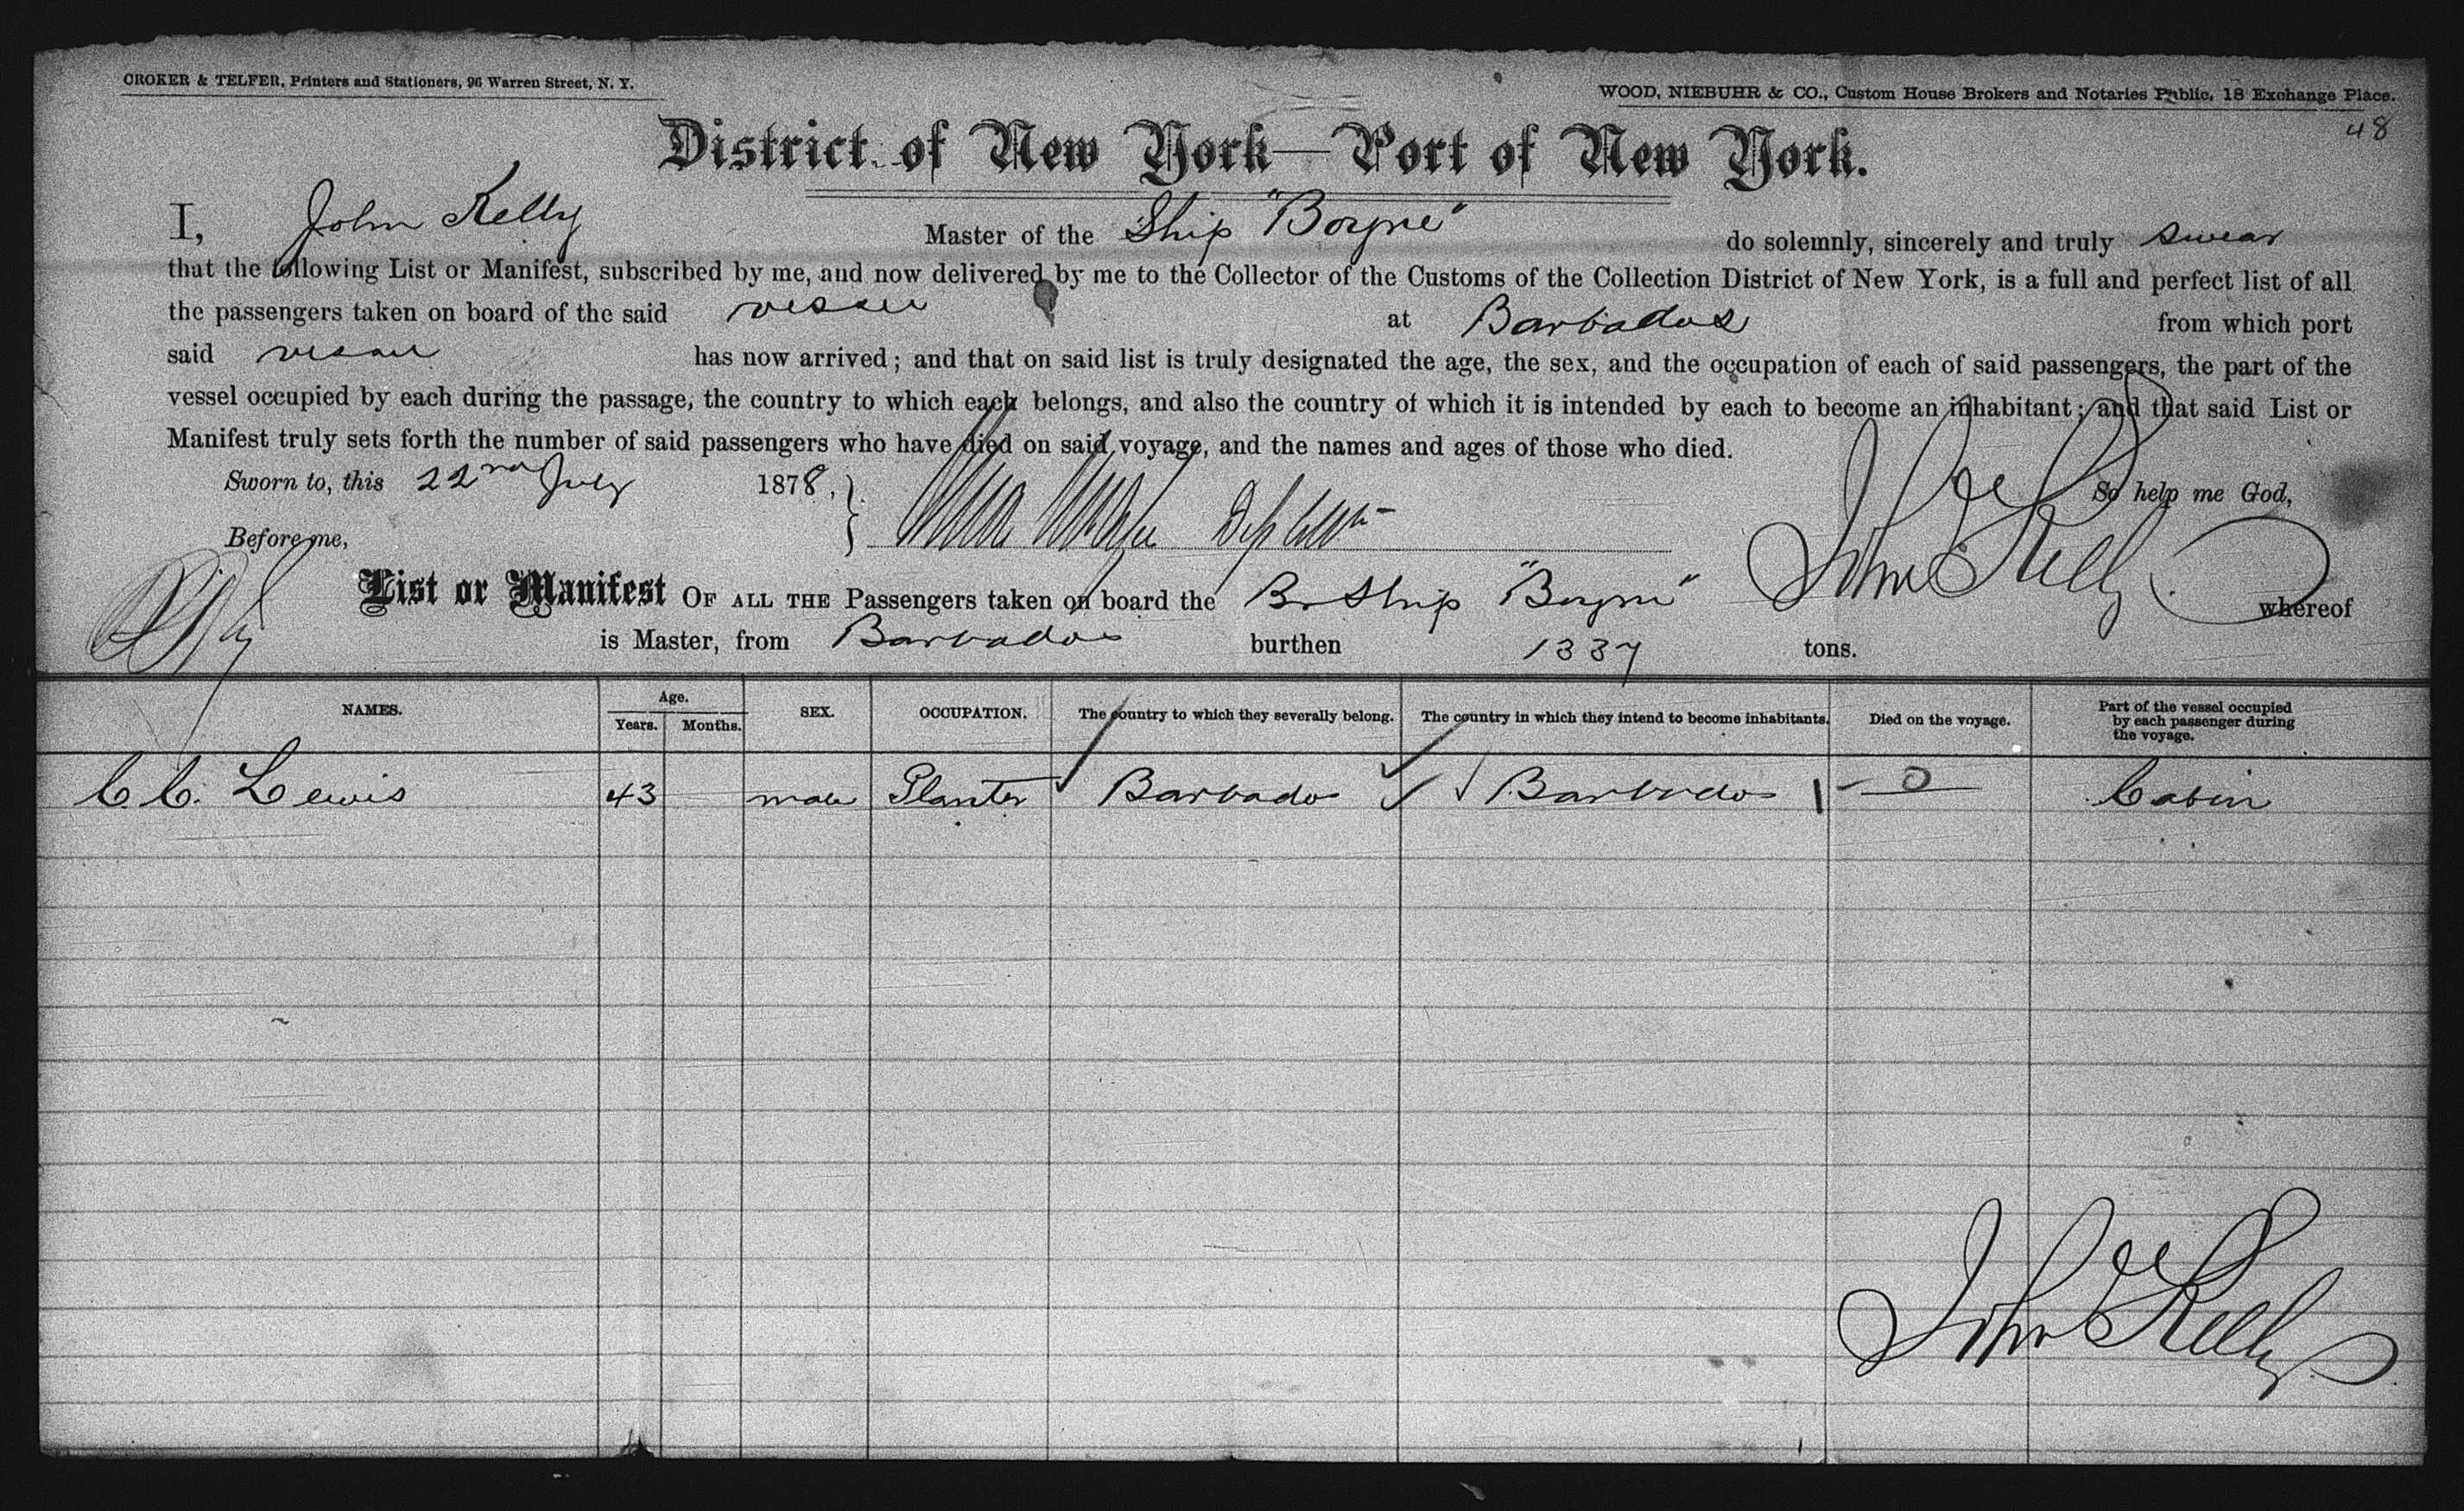 CROKER & TELFER, Printers and Stationers, 96 Warren Street, N. Y.
WOOD, NIEBUHR & CO., Custom House Brokers and Notaries Public, 18 Exchange Place.
48
District of New York—Port of New York.
I, John Kelly Master of the Ship "Boyne" do solemnly, sincerely and truly swear
that the following List or Manifest, subscribed by me, and now delivered by me to the Collector of the Customs of the Collection District of New York, is a full and perfect list of all
the passengers taken on board of the said vessel at Barbados from which port
said vessel has now arrived; and that on said list is truly designated the age, the sex, and the occupation of each of said passengers, the part of the
vessel occupied by each during the passage, the country to which each belongs, and also the country of which it is intended by each to become an inhabitant; and that said List or
Manifest truly sets forth the number of said passengers who have died on said voyage, and the names and ages of those who died.
Sworn to, this 22nd July 1878, So help me God,
Before me, John Kelly
List or Manifest OF ALL THE Passengers taken on board the Br Ship "Boyne" whereof
is Master, from Barbados burthen 1337 tons.
NAMES. Age. Years. Months. SEX. OCCUPATION. The country to which they severally belong. The country in which they intend to become inhabitants. Died on the voyage. Part of the vessel occupied by each passenger during the voyage.
C. C. Lewis 43 male Planter Barbados Barbados 0 Cabin
John Kelly